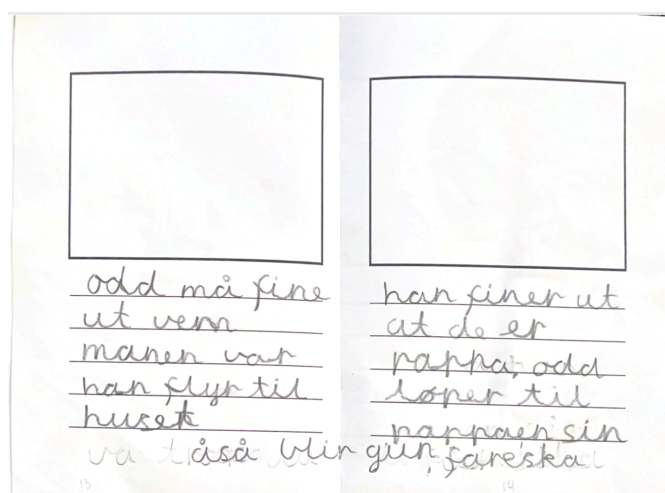 odd må fine
ut vem
manen var
han flyr til
huset
han finer ut
at de er
pappa, odd
løper til
pappaen sin
åså blir gün, fareska
13
14